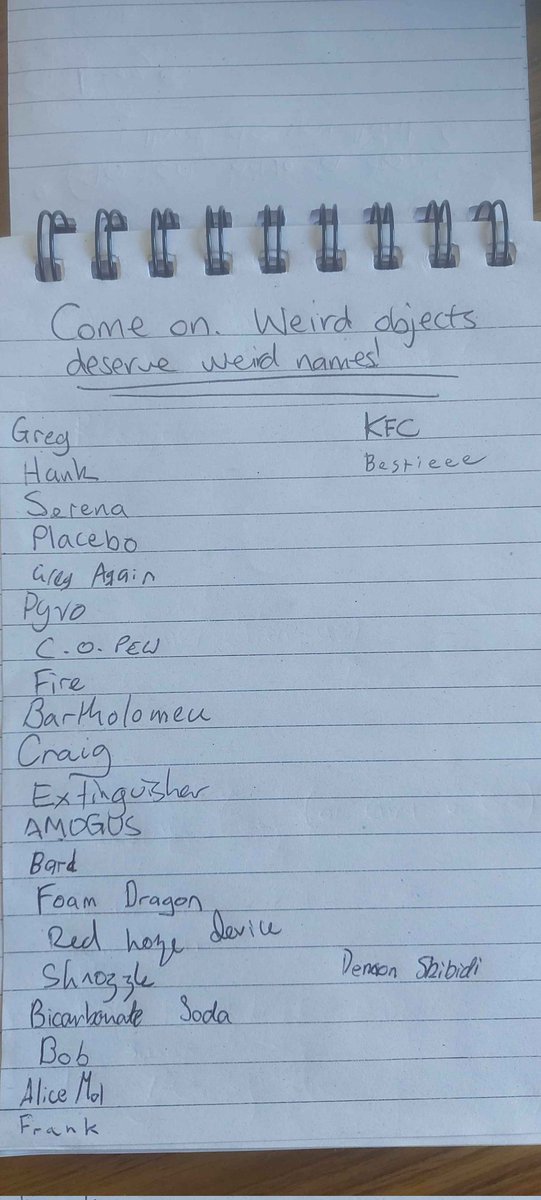 Come on. Weird objects
deserve weird names!
Greg
KFC
Hank
Bestieee
Serena
Placebo
Greg Again
Pyro
C.O. PEW
Fire
Bartholomew
Craig
Extinguisher
AMOGUS
Bard
Foam Dragon
Red hoze device
Shnozzle
Demon Skibidi
Bicarbonate Soda
Bob
Alice Mol
Frank